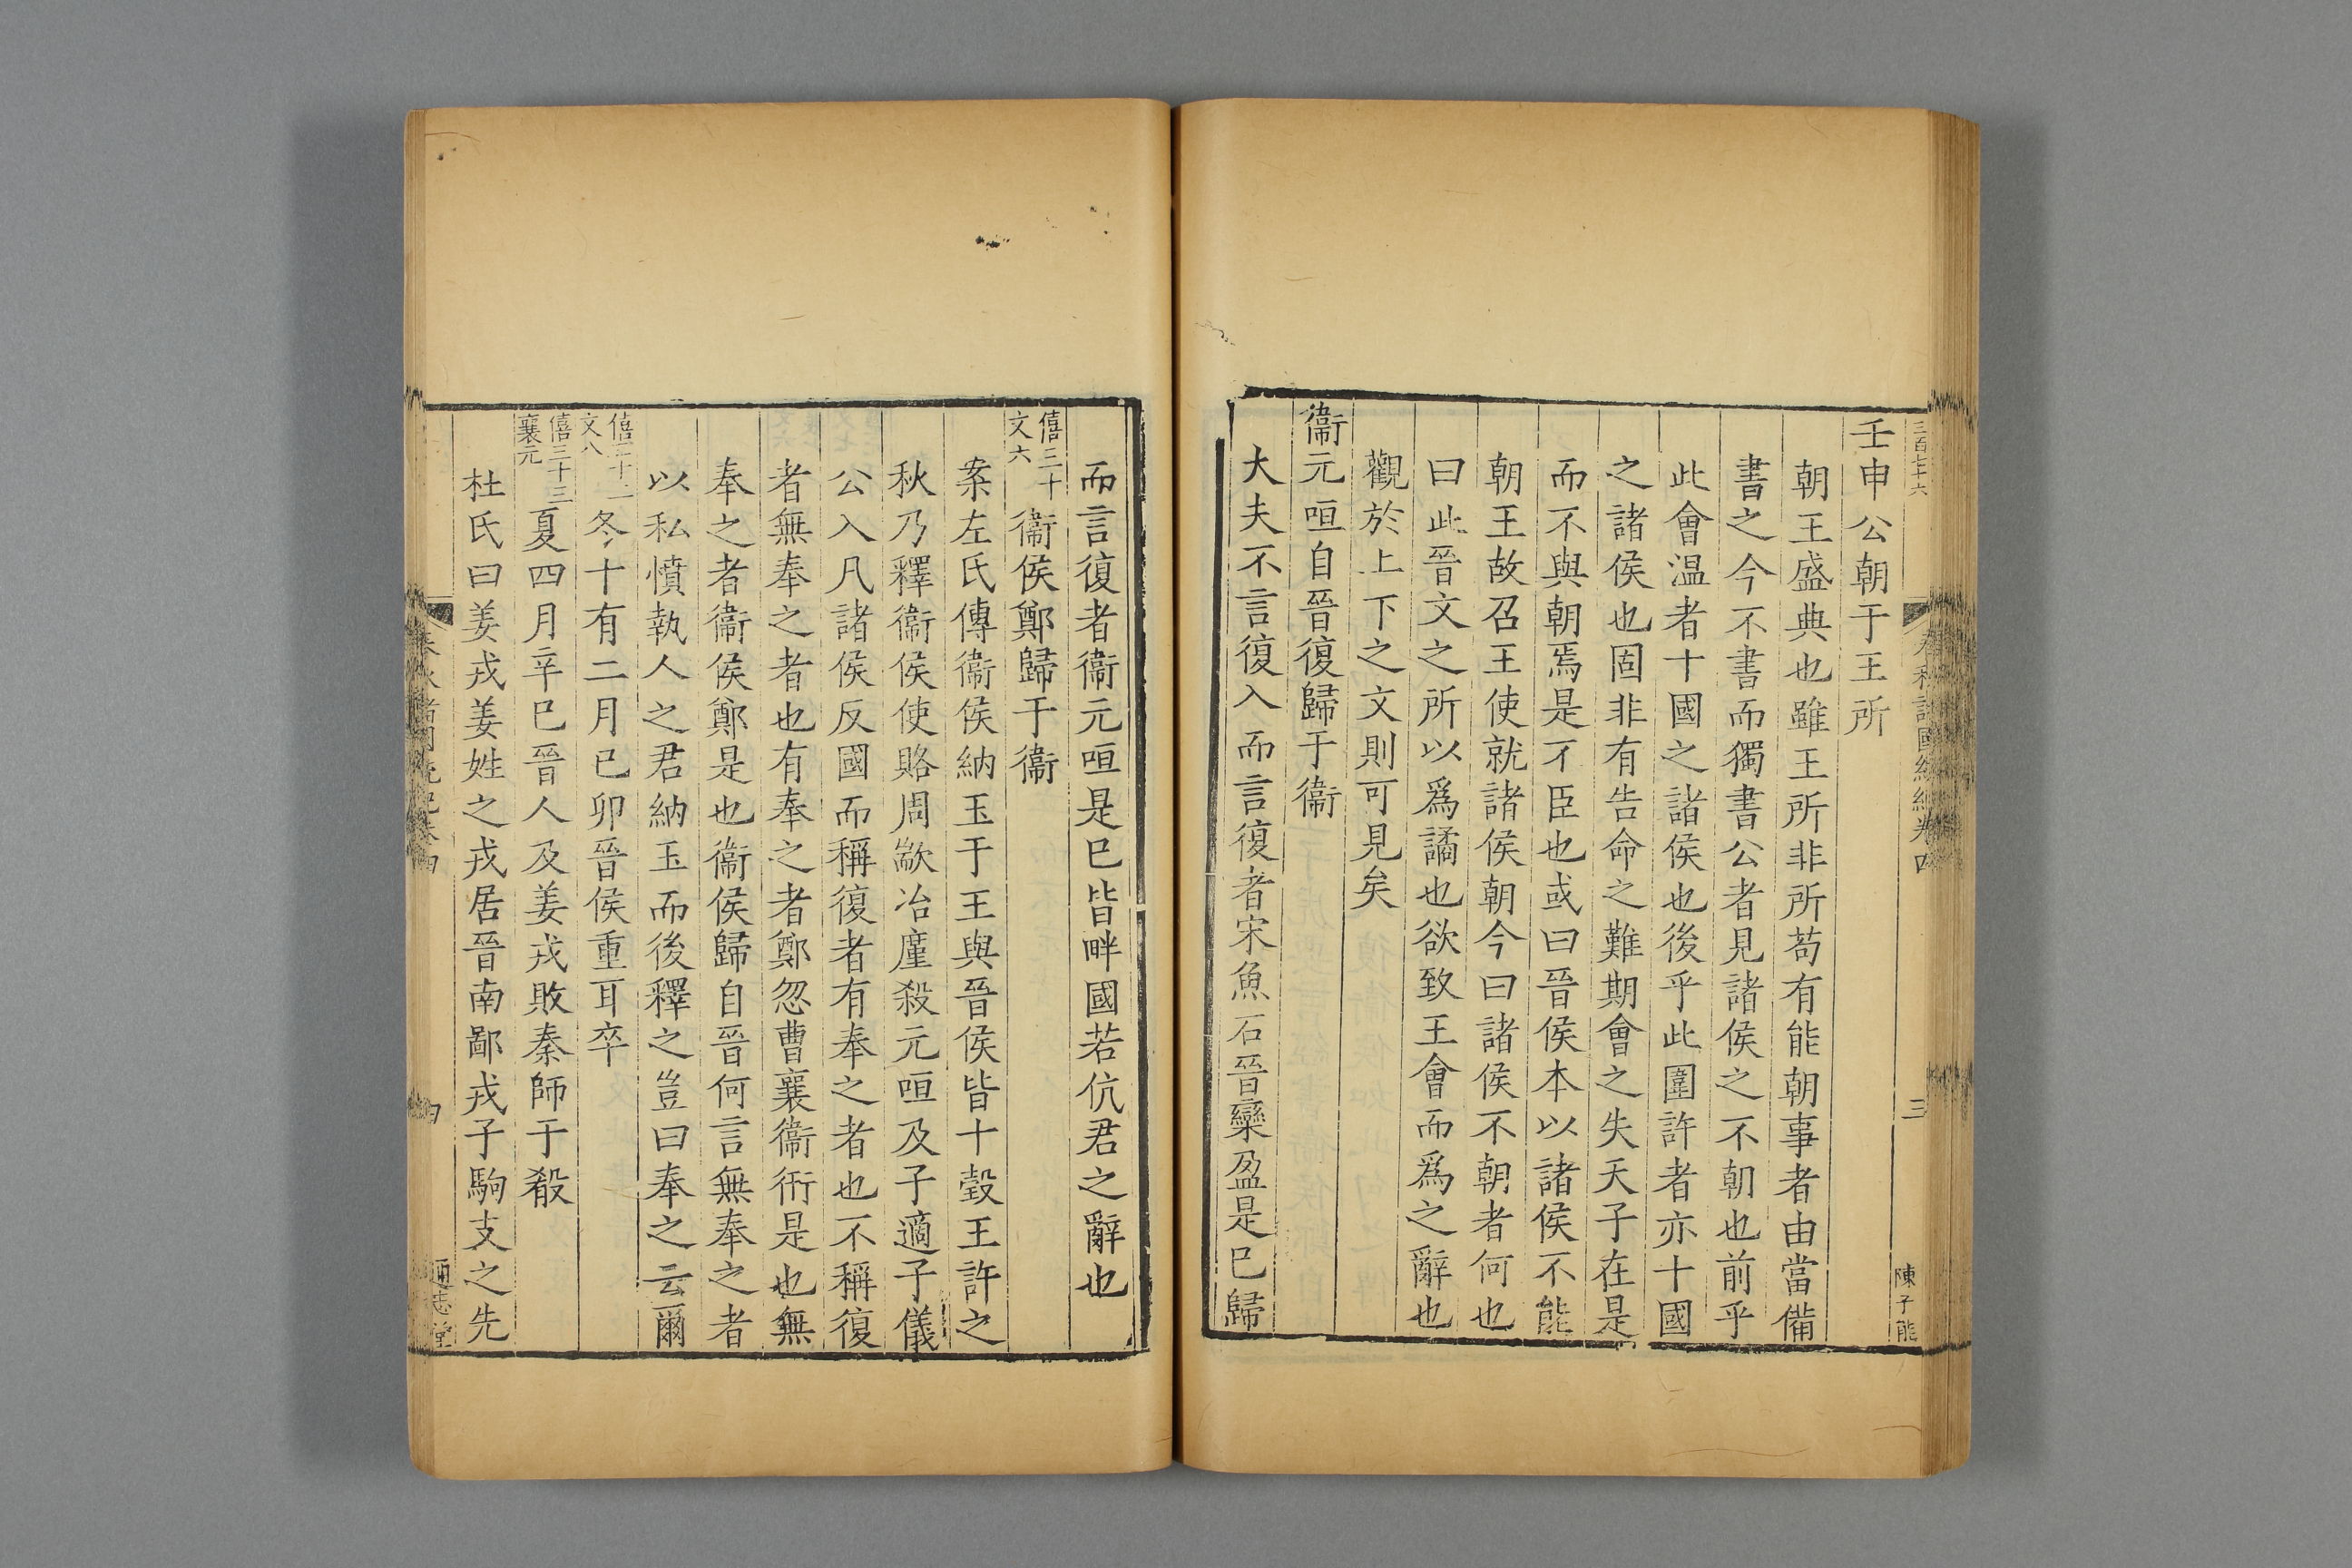 三百七十六
三
陳子能
壬申公朝于王所
朝王盛典也雖王所非所苟有能朝事者由當備
書之今不書而獨書公者見諸侯之不朝也前乎
此會温者十國之諸侯也後乎此圍許者亦十國
之諸侯也固非有告命之難期會之失天子在是
而不與朝焉是不臣也或曰晉侯本以諸侯不能
朝王故召王使就諸侯朝今曰諸侯不朝者何也
曰此晉文之所以爲譎也欲致王會而爲之辭也
觀於上下之文則可見矣
衞元咺自晉復歸于衞
大夫不言復入而言復者宋魚石晉欒盈是巳歸
而言復者衞元咺是巳皆畔國若伉君之辭也
僖三十
文六
衞侯鄭歸于衞
案左氏傳衞侯納玉于王與晉侯皆十瑴王許之
秋乃釋衞侯使賂周歂冶廑殺元咺及子適子儀
公入凡諸侯反國而稱復者有奉之者也不稱復
者無奉之者也有奉之者鄭忽曹襄衞衎是也無
奉之者衞侯鄭是也衞侯歸自晉何言無奉之者
以私憤執人之君納玉而後釋之豈曰奉之云爾
僖三十二
文八
冬十有二月己卯晉侯重耳卒
僖三十三
襄元
夏四月辛巳晉人及姜戎敗秦師于殽
杜氏曰姜戎姜姓之戎居晉南鄙戎子駒支之先
通志堂